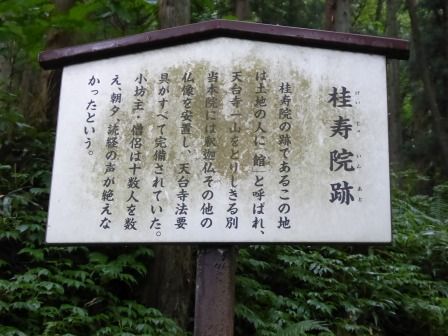 桂寿院跡
けい じゅ いん あと
桂寿院の跡であるこの地
は土地の人に「館」と呼ばれ、
天台寺一山をとりしきる別
当本院には釈迦仏その他の
仏像を安置し、天台寺法要
具がすべて完備されていた。
小坊主・僧侶は十数人を数
え、朝夕、読経の声が絶えな
かったという。